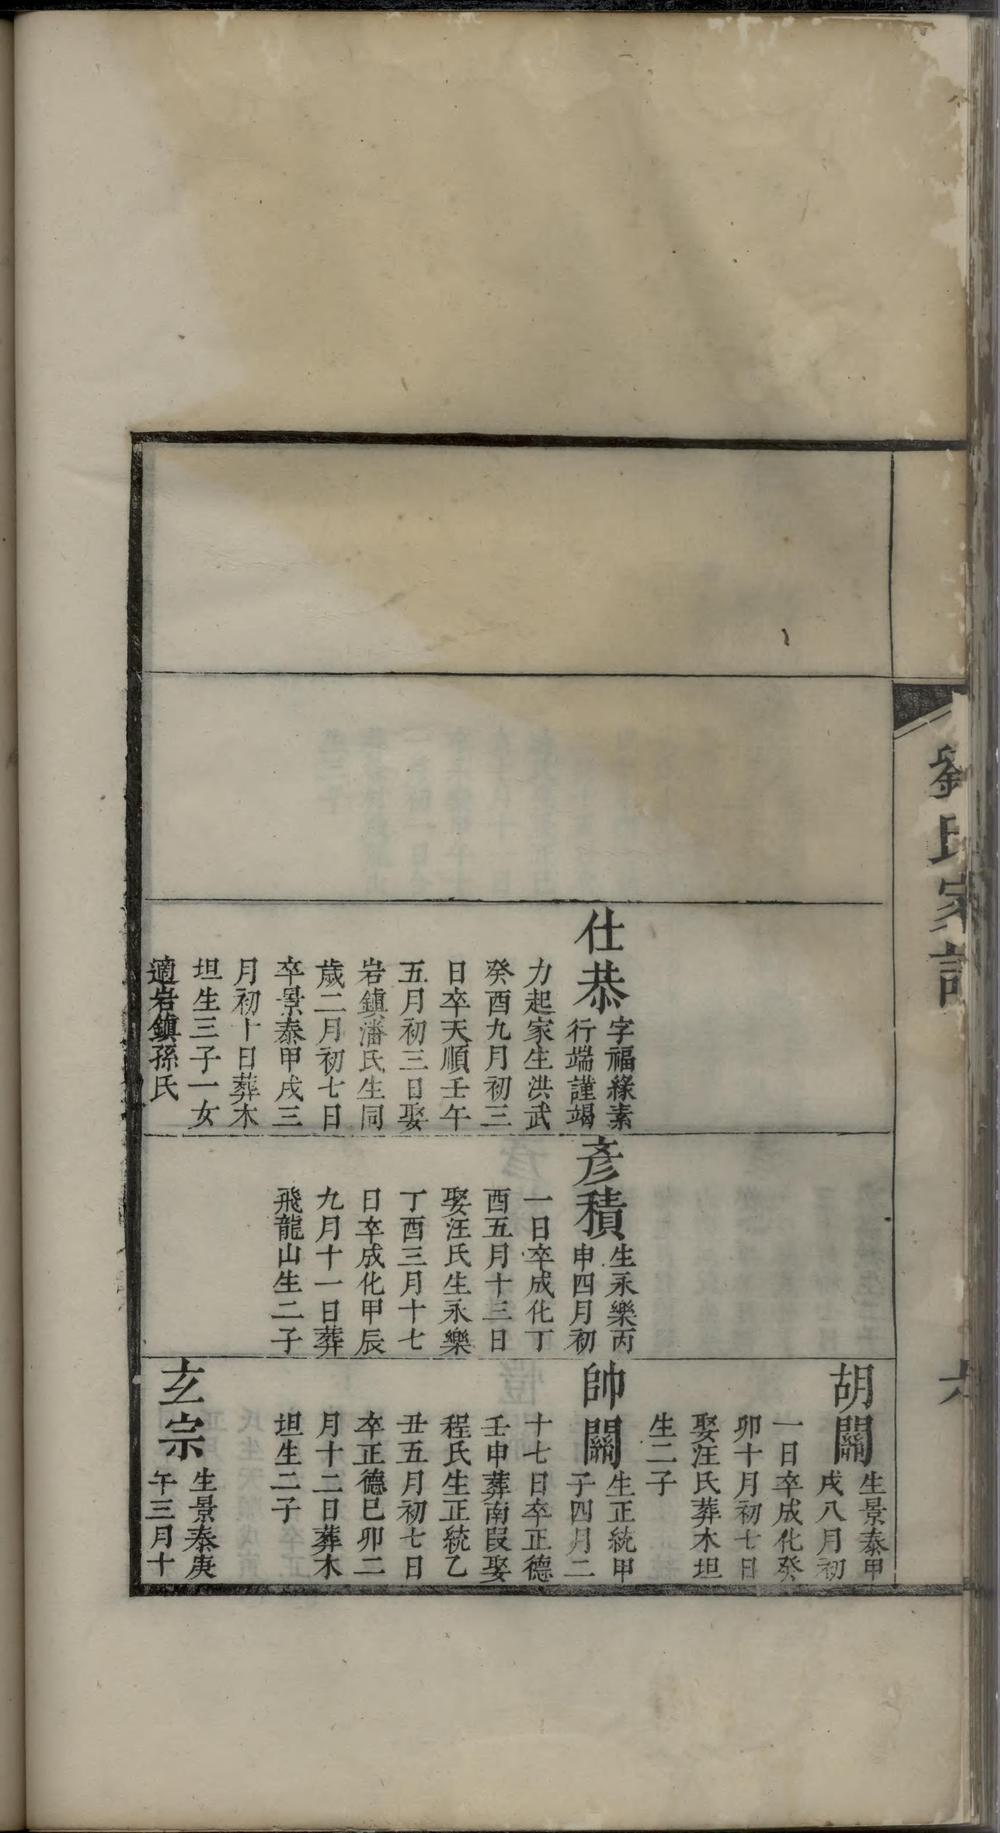 劉氏家譜
六
仕恭
字福緣素
行端謹竭
力起家生洪武
癸酉九月初三
日卒天順壬午
五月初三日娶
岩鎮潘氏生同
歲二月初七日
卒景泰甲戌三
月初十日葬木
坦生三子一女
適岩鎮孫氏
彥積
生永樂丙
申四月初
一日卒成化丁
酉五月十三日
娶汪氏生永樂
丁酉三月十七
日卒成化甲辰
九月十一日葬
飛龍山生二子
胡關
生景泰甲
戌八月初
一日卒成化癸
卯十月初七日
娶汪氏葬木坦
生二子
帥關
生正統甲
子四月二
十七日卒正德
壬申葬南叚娶
程氏生正統乙
丑五月初七日
卒正德巳卯二
月十二日葬木
坦生二子
玄宗
生景泰庚
午三月十